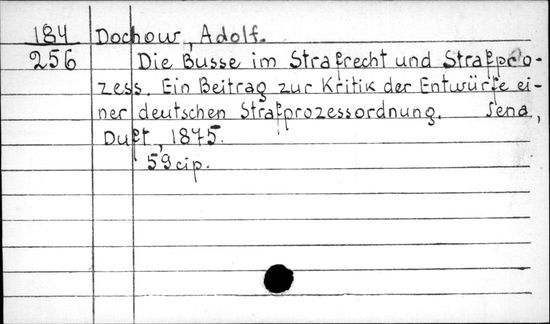 184 Dochow, Adolf.
256 Die Busse im Strafrecht und Strafpro-
zess. Ein Beitrag zur Kritik der Entwürfe ei-
ner deutschen Strafprozessordnung. Jena,
Duft, 1875.
59 cip.